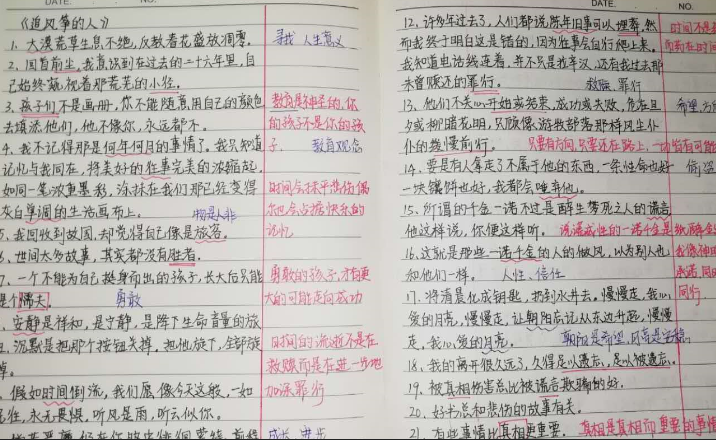 DATE.
NO.
《追风筝的人》
1、大漠荒草生息不绝,反教春花盛放凋零。
寻找 人生意义
2、回首前尘,我意识到在过去的二十六年里,自
己始终窥视着那荒芜的小径。
3、孩子们不是画册,你不能随意用自己的颜色
去填涂他们,他不像你,永远都不。
教育是神圣的,你
的孩子不是你的孩
子.
4、我不记得那是何年何月的事情了。我只知道
教育观念
记忆与我同在,将美好的往事完美的浓缩起,
如同一笔浓重墨彩,涂抹在我们那已经变得
灰白单调的生活画布上。
物是人非
时间会抹平悲伤,偶
尔也会占据快乐的
记忆
5、我回到故国,却觉得自己像是旅客。
6、世间大多故事,其实都没有胜者。
7、一个不能为自己挺身而出的孩子,长大后只能
是个懦夫。
勇敢
勇敢的孩子,才有更
大的可能走向成功
安静是祥和,是宁静,是降下生命音量的旋
沉默是把那个按钮关掉。把他放下,全部旋
掉。
时间的流逝不是在
救赎而是在进一步地
加深罪行
假如时间倒流,我们愿像今天这般,一如
既往,永无畏惧,听风是雨,听云似你。
成长 进步
DATE.
NO.
12、许多年过去了,人们都说陈年旧事可以埋葬,然
而我终于明白这是错的,因为往事会自行爬上来。
时间不是
我知道电话线连着,并不只是拉辛汉,还有我过去那
未曾赎还的罪行。
救赎 罪行
13、他们不关心开始或结束,成功或失败,危在旦
希望
夕或柳暗花明,只顾像游牧部落那样风尘仆
仆的缓慢前行。
只要有方向,只要还在路上,一切皆有可能
14、要是有人拿走了不属于他的东西,一条性命也好
一块馕饼也好,我都会唾弃他。
15、所谓的千金一诺不过是醉生梦死之人的谎言
他这样说,你便这样听。
16、这就是那些一诺千金的人的做风,以为别人也
和他们一样。
人性、信任
17、将清晨化成钥匙,扔到水井去。慢慢走,我心
同行
爱的月亮,慢慢走,让朝阳忘记从东边升起,慢慢
走,我心爱的月亮。
18、我的离开很久远了,久得足以遗忘,足以被遗忘。
19、被真相伤害总比被谎言欺骗的好。
20、好书总和悲伤的故事有关。
21、有些事情比真相更重要。
真相是真相而